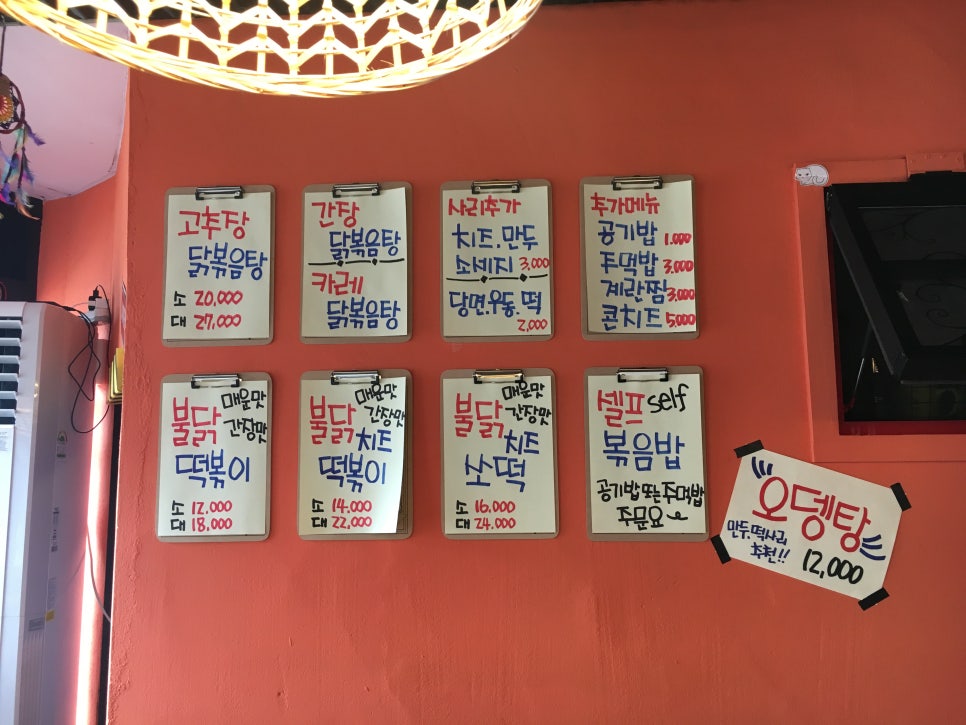 고추장
닭볶음탕
소 20,000
대 27,000
간장
닭볶음탕
카레
닭볶음탕
사리추가
치즈.만두
소세지 3,000
당면.우동.떡
2,000
추가메뉴
공기밥 1,000
주먹밥 3,000
계란찜 3,000
콘치즈 5,000
매운맛
불닭 간장맛
떡볶이
소 12,000
대 18,000
매운맛
불닭 간장맛
치즈
떡볶이
소 14,000
대 22,000
매운맛
불닭 간장맛
치즈
쏘떡
소 16,000
대 24,000
셀프 self
볶음밥
공기밥 또는 주먹밥
주문요
오뎅탕
만두.떡사리
추천!! 12,000